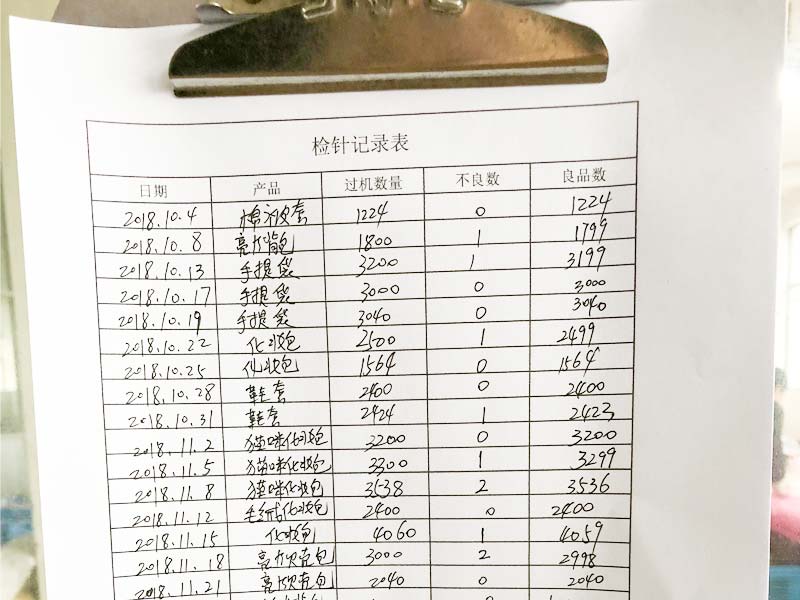 检针记录表
日期 产品 过机数量 不良数 良品数
2018.10.4 皮套 1224 0 1224
2018.10.8 亮片背包 1800 1 1799
2018.10.13 手提袋 3200 1 3199
2018.10.17 手提袋 3000 0 3000
2018.10.19 手提袋 3040 0 3040
2018.10.22 化妆包 2500 1 2499
2018.10.25 化妆包 1564 0 1564
2018.10.28 鞋套 2400 0 2400
2018.10.31 鞋套 2424 1 2423
2018.11.2 猫咪化妆包 3200 0 3200
2018.11.5 猫咪化妆包 3300 1 3299
2018.11.8 猫咪化妆包 3538 2 3536
2018.11.12 毛绒化妆包 2400 0 2400
2018.11.15 化妆包 4060 1 4059
2018.11.18 亮片包 3000 2 2998
2018.11.21 亮包 2040 0 2040